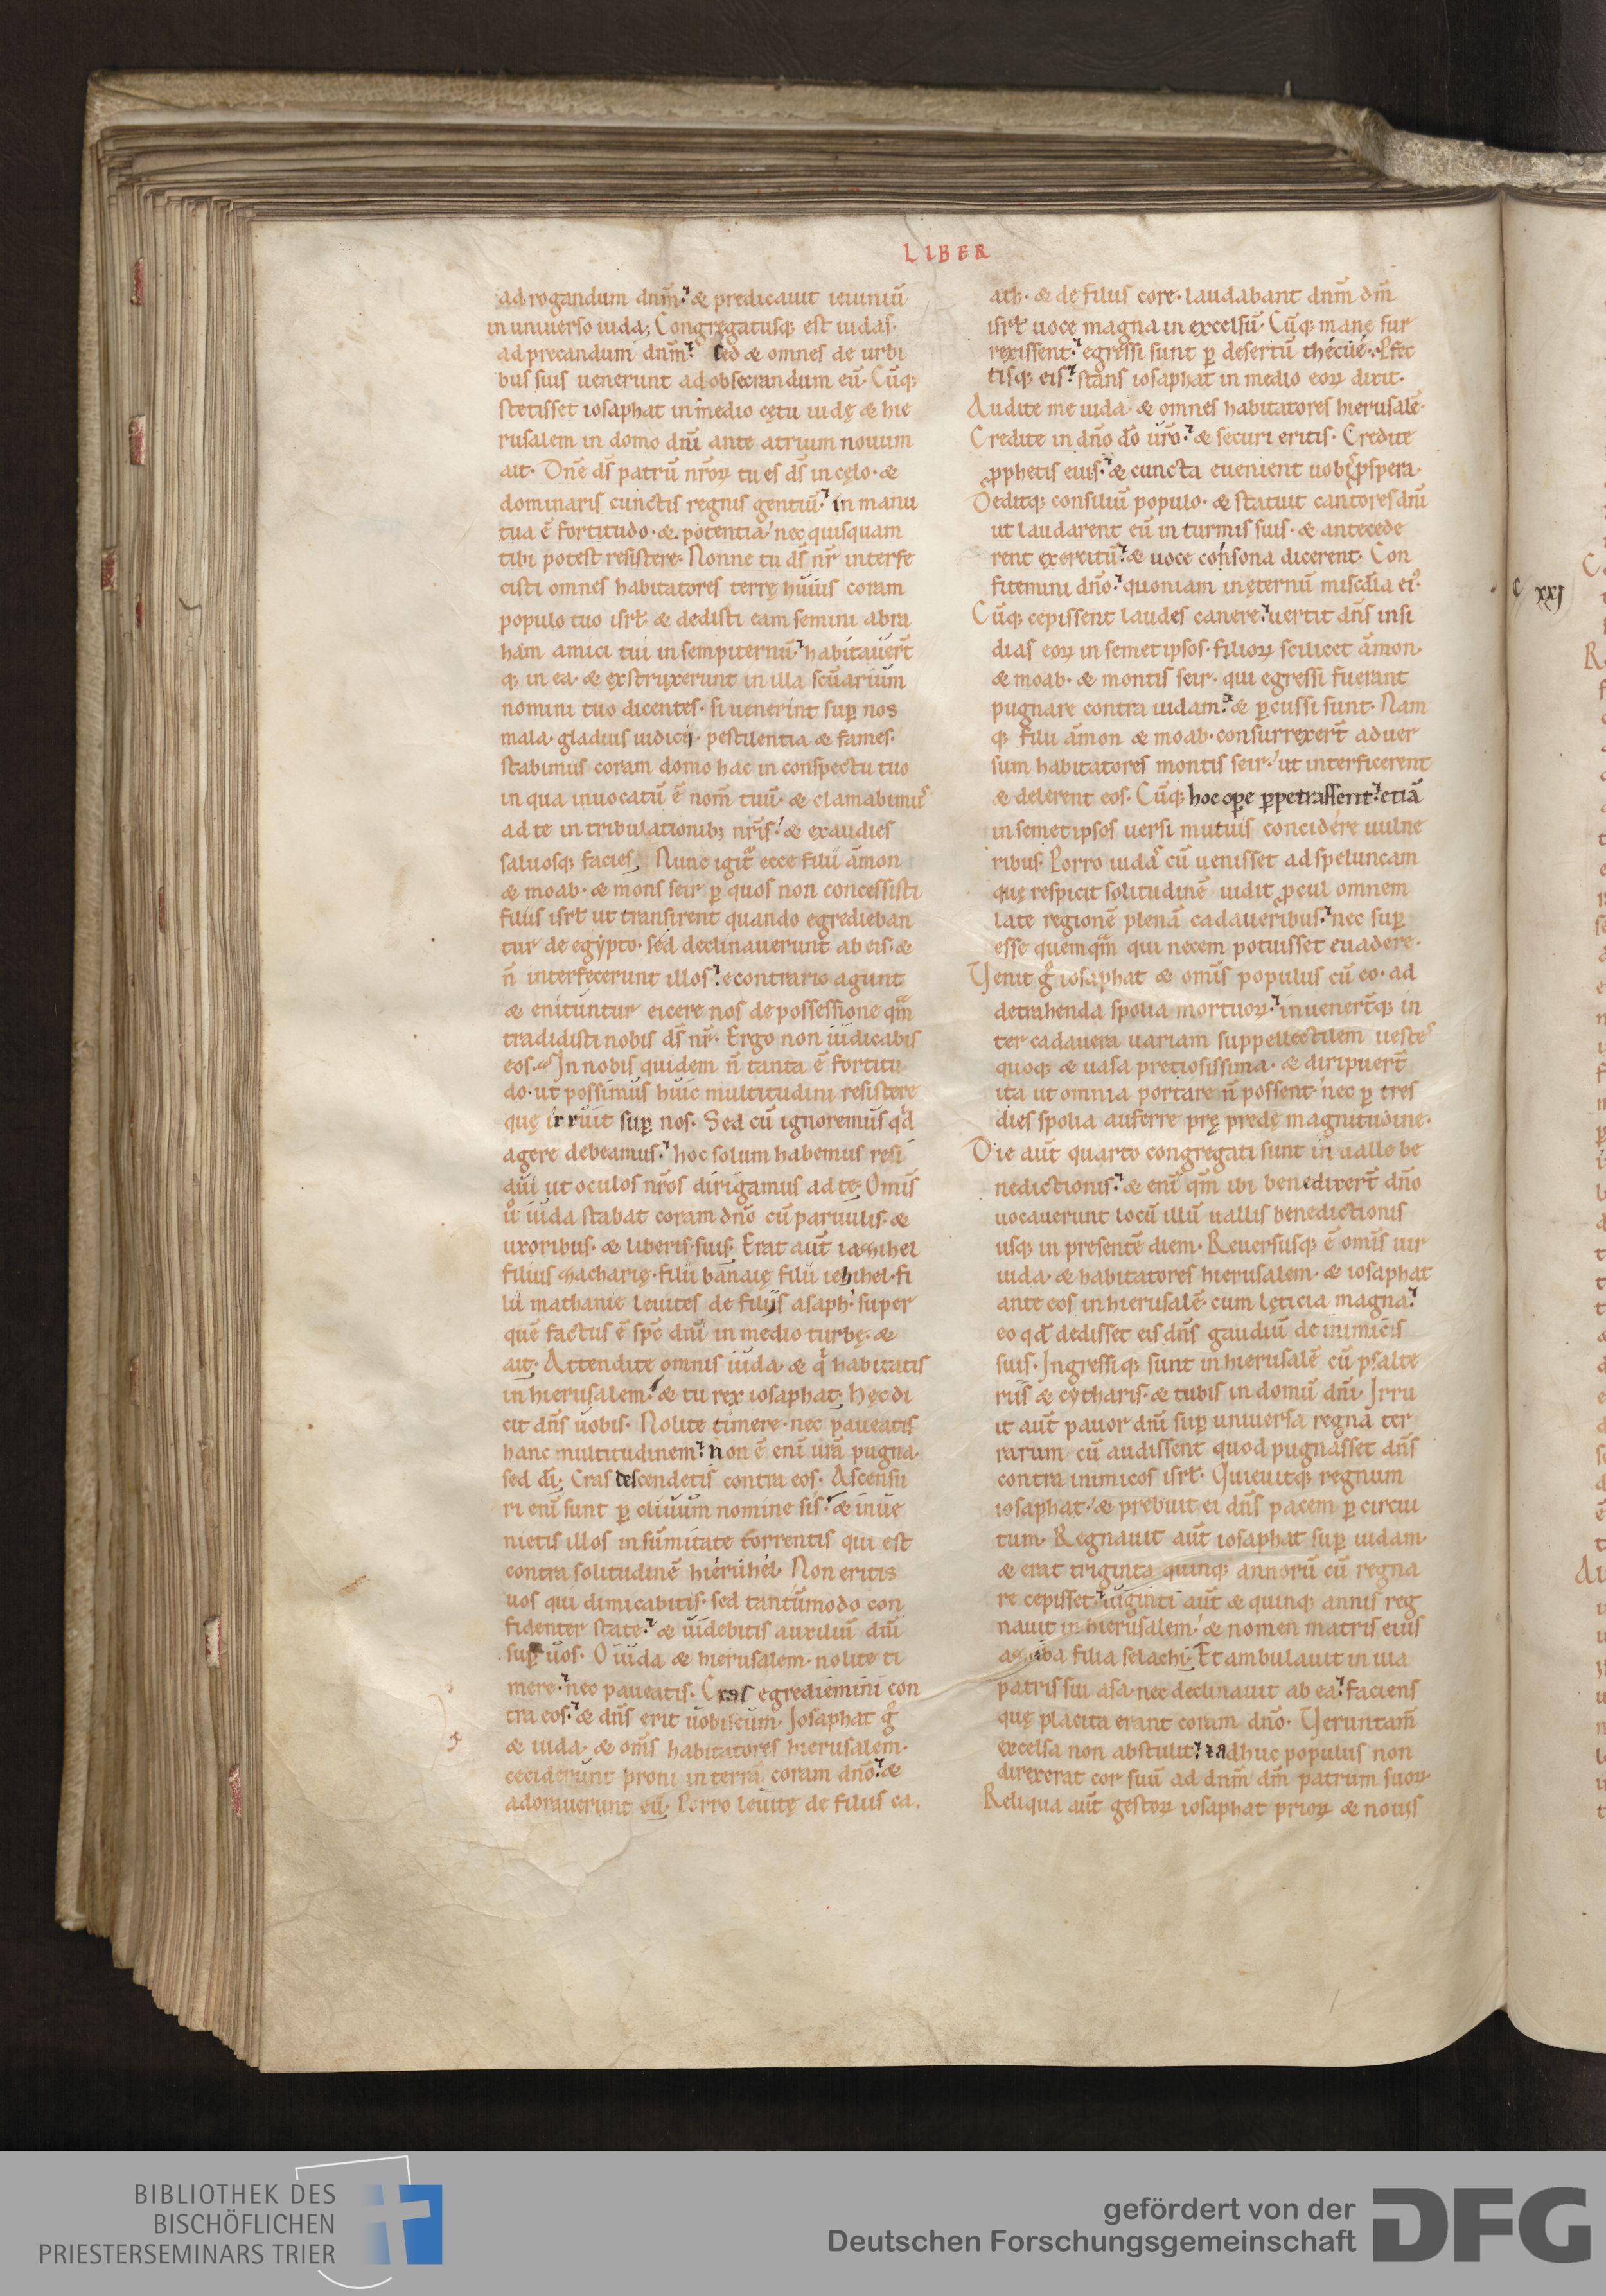 LIBER
ad rogandum dnm̄. & predicauit ieiuniū
in uniuerso iuda; Congregatusq; est iudas.
ad precandum dnm̄. Sed & omnes de urbi
bus suis uenerunt ad obsecrandum eū. Cūq;
stetisset iosaphat in medio cętu iudę & hie
rusalem in domo dnī ante atrium nouum
ait. Dn̄e ds̄ patrū nr̄oꝝ tu es ds̄ in cęlo. &
dominaris cunctis regnis gentiū. in manu
tua ē fortitudo. & potentia. nec quisquam
tibi potest resistere. Nonne tu ds̄ nr̄ interfe
cisti omnes habitatores terrę huius coram
populo tuo isrl̄. & dedisti eam semini abra
ham amici tui in sempiternū. habitauer̄t
q; in ea. & exstruxerunt in illa scūarium
nomini tuo dicentes. si uenerint suꝑ nos
mala. gladius iudicij. pestilentia & fames.
stabimus coram domo hac in conspectu tuo
in qua inuocatū ē nom̄ tuū. & clamabimus
ad te in tribulationib; nr̄is. & exaudies
saluosq; facies. Nunc igit̄ ecce filii āmon
& moab. & mons seir ꝑ quos non concessisti
filiis isrl̄ ut transirent quando egredieban
tur de egypto. sed declinauerunt ab eis. &
n̄ interfecerunt illos. econtrario agunt
& enituntur eicere nos de possessione qm̄
tradidisti nobis ds̄ nr̄. Ergo non iudicabis
eos. In nobis quidem n̄ tanta ē fortitu
do. ut possimus huic multitudini resistere
quę irruit suꝑ nos. Sed cū ignoremus qd̄
agere debeamus. hoc solum habemus resi
dui ut oculos nr̄os dirigamus ad te. Omīs
uº iuda stabat coram dn̄o cū paruulis. &
uxoribus. & liberis suis. Erat aūt iazihel
filius zacharię. filii banaię filii iehihel. fi
lii mathanie leuites de filijs asaph. super
quē factus ē sp̄c dnī in medio turbę. &
ait. Attendite omnis iuda. & qͥ habitatis
in hierusalem. & tu rex iosaphat. Hęc di
cit dn̄s uobis. Nolite timere. nec paueatis
hanc multitudinem. non ē enī ur̄a pugna.
sed dī. Cras descendetis contra eos. Ascensu
ri enī sunt ꝑ cliuum nomine sis. & inue
nietis illos in sūmitate torrentis qui est
contra solitudinē hieruhel. Non eritis
uos qui dimicabitis. sed tantūmodo con
fidenter state. & uidebitis auxiliū dnī
suꝑ uos. O iuda & hierusalem. nolite ti
mere. nec paueatis. Cras egrediemini con
tra eos. & dn̄s erit uobiscum. Iosaphat gͦ
& iuda. & om̄s habitatores hierusalem.
ceciderunt proni in terrā coram dn̄o. &
adorauerunt eū. Porro leuitę de filiis ca.
ath. & de filiis core. laudabant dnm̄ dm̄
isrl̄ uoce magna in excelsū. Cūq; mane sur
rexissent. egressi sunt ꝑ desertū thécúe. Pfec
tisq; eis. stans iosaphat in medio eoꝝ dixit.
Audite me iuda. & omnes habitatores hierusalē.
Credite in dn̄o dō ur̄o. & securi eritis. Credite
ꝓphetis eius. & cuncta euenient uobis ꝓspera.
Deditq; consiliū populo. & statuit cantores dnī
ut laudarent eū in turmis suis. & antecede
rent exercitū. & uoce consona dicerent. Con
fitemini dn̄o. quoniam in ęternū misc̄dia ei9.
Cūq; cepissent laudes canere. uertit dn̄s insi
dias eoꝝ in semetipsos. filioꝝ scilicet āmon.
& moab. & montis seir. qui egressi fuerant
pugnare contra iudam. & ꝑcussi sunt. Nam
q; filii āmon & moab. consurrexer̄t aduer
sum habitatores montis seir. ut interficerent
& delerent eos. Cūq; hoc oꝑe ꝑpetrassent. etiā
in semetipsos uersi mutuis concidere uulne
ribus. Porro iudas cū uenisset ad speluncam
quę respicit solitudinē uidit ꝓcul omnem
late regionē plenā cadaueribus. nec suꝑ
esse quemqm̄ qui necem potuisset euadere.
Uenit gͦ iosaphat & omīs populus cū eo. ad
detrahenda spolia mortuoꝝ. inuener̄tq; in
ter cadauera uariam suppellectilem uestes
quoq; & uasa preciosissima. & diripuer̄t
ita ut omnia portare n̄ possent. nec ꝑ tres
dies spolia auferre prę predę magnitudine.
Die aūt quarto congregati sunt in ualle be
nedictionis. & enī qm̄ ibi benedixer̄t dn̄o
uocauerunt locū illū uallis benedictionis
usq; in presentē diem. Reuersusq; ē omīs uir
iuda. & habitatores hierusalem. & iosaphat
ante eos in hierusalē. cum lęticia magna.
eo qd̄ dedisset eis dn̄s gaudiū de inimicis
suis. Ingressiq; sunt in hierusalē cū psalte
riis & cytharis. & tubis in domū dnī. Irru
it aūt pauor dnī suꝑ uniuersa regna ter
rarum cū audissent quod pugnasset dn̄s
contra inimicos isrl̄. Quieuitq; regnum
iosaphat. & prebuit ei dn̄s pacem ꝑ circui
tum. Regnauit aūt iosaphat suꝑ iudam.
& erat triginta quinq; annorū cū regna
re cepisset. uiginti aūt & quinq; annis reg
nauit in hierusalem. & nomen matris eius
azuba filia selachi. Et ambulauit in uia
patris sui asa. nec declinauit ab ea. faciens
quę placita erant coram dn̄o. Ueruntam̄
excelsa non abstulit. & adhuc populus non
direxerat cor suū ad dnm̄ dm̄ patrum suoꝝ.
Reliqua aūt gestoꝝ iosaphat prioꝝ & nouis
c xxj
BIBLIOTHEK DES
BISCHÖFLICHEN
PRIESTERSEMINARS TRIER
gefördert von der
Deutschen Forschungsgemeinschaft
DFG